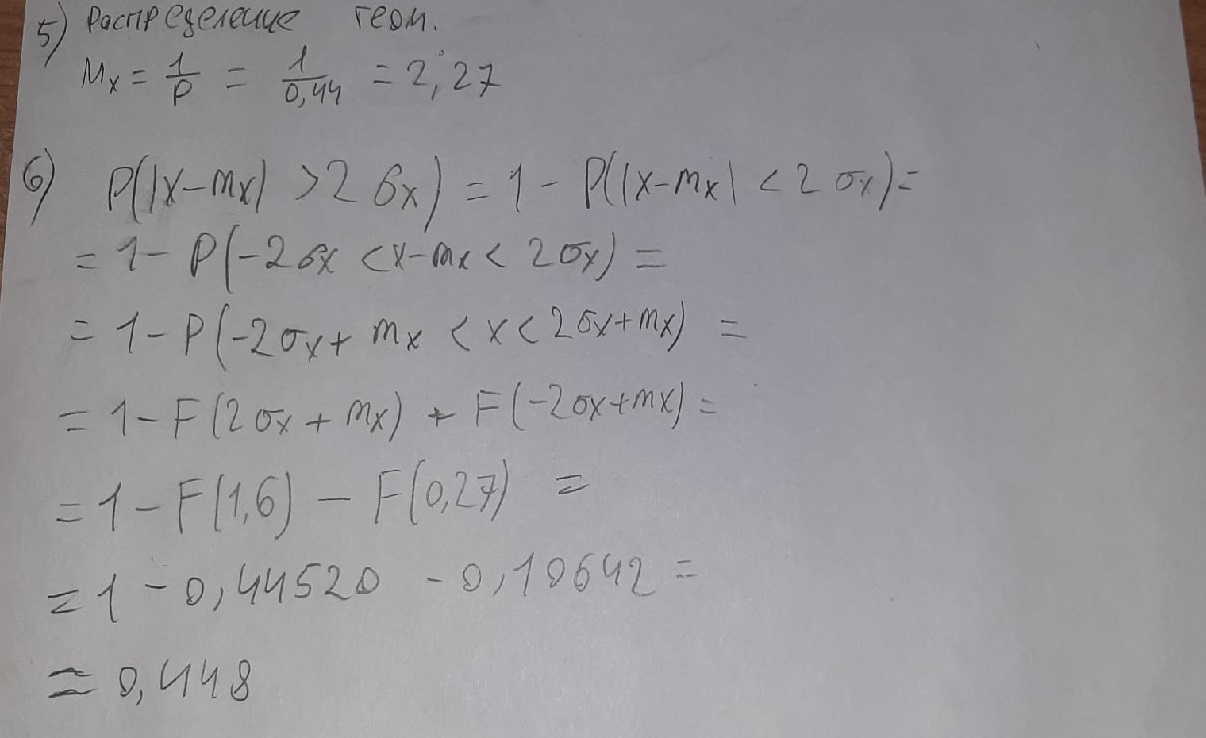 5) Распределение геом.
Mx = 1/p = 1/0,44 = 2,27
6) P(|x-mx| > 2σx) = 1 - P(|x-mx| < 2σx) =
= 1- P(-2σx < x-mx < 2σx) =
= 1-P(-2σx+ mx < x < 2σx+mx) =
= 1-F(2σx + mx) + F(-2σx+mx) =
= 1-F(1,6) - F(0,27) =
= 1 - 0,44520 - 0,10642 =
≈ 0,448